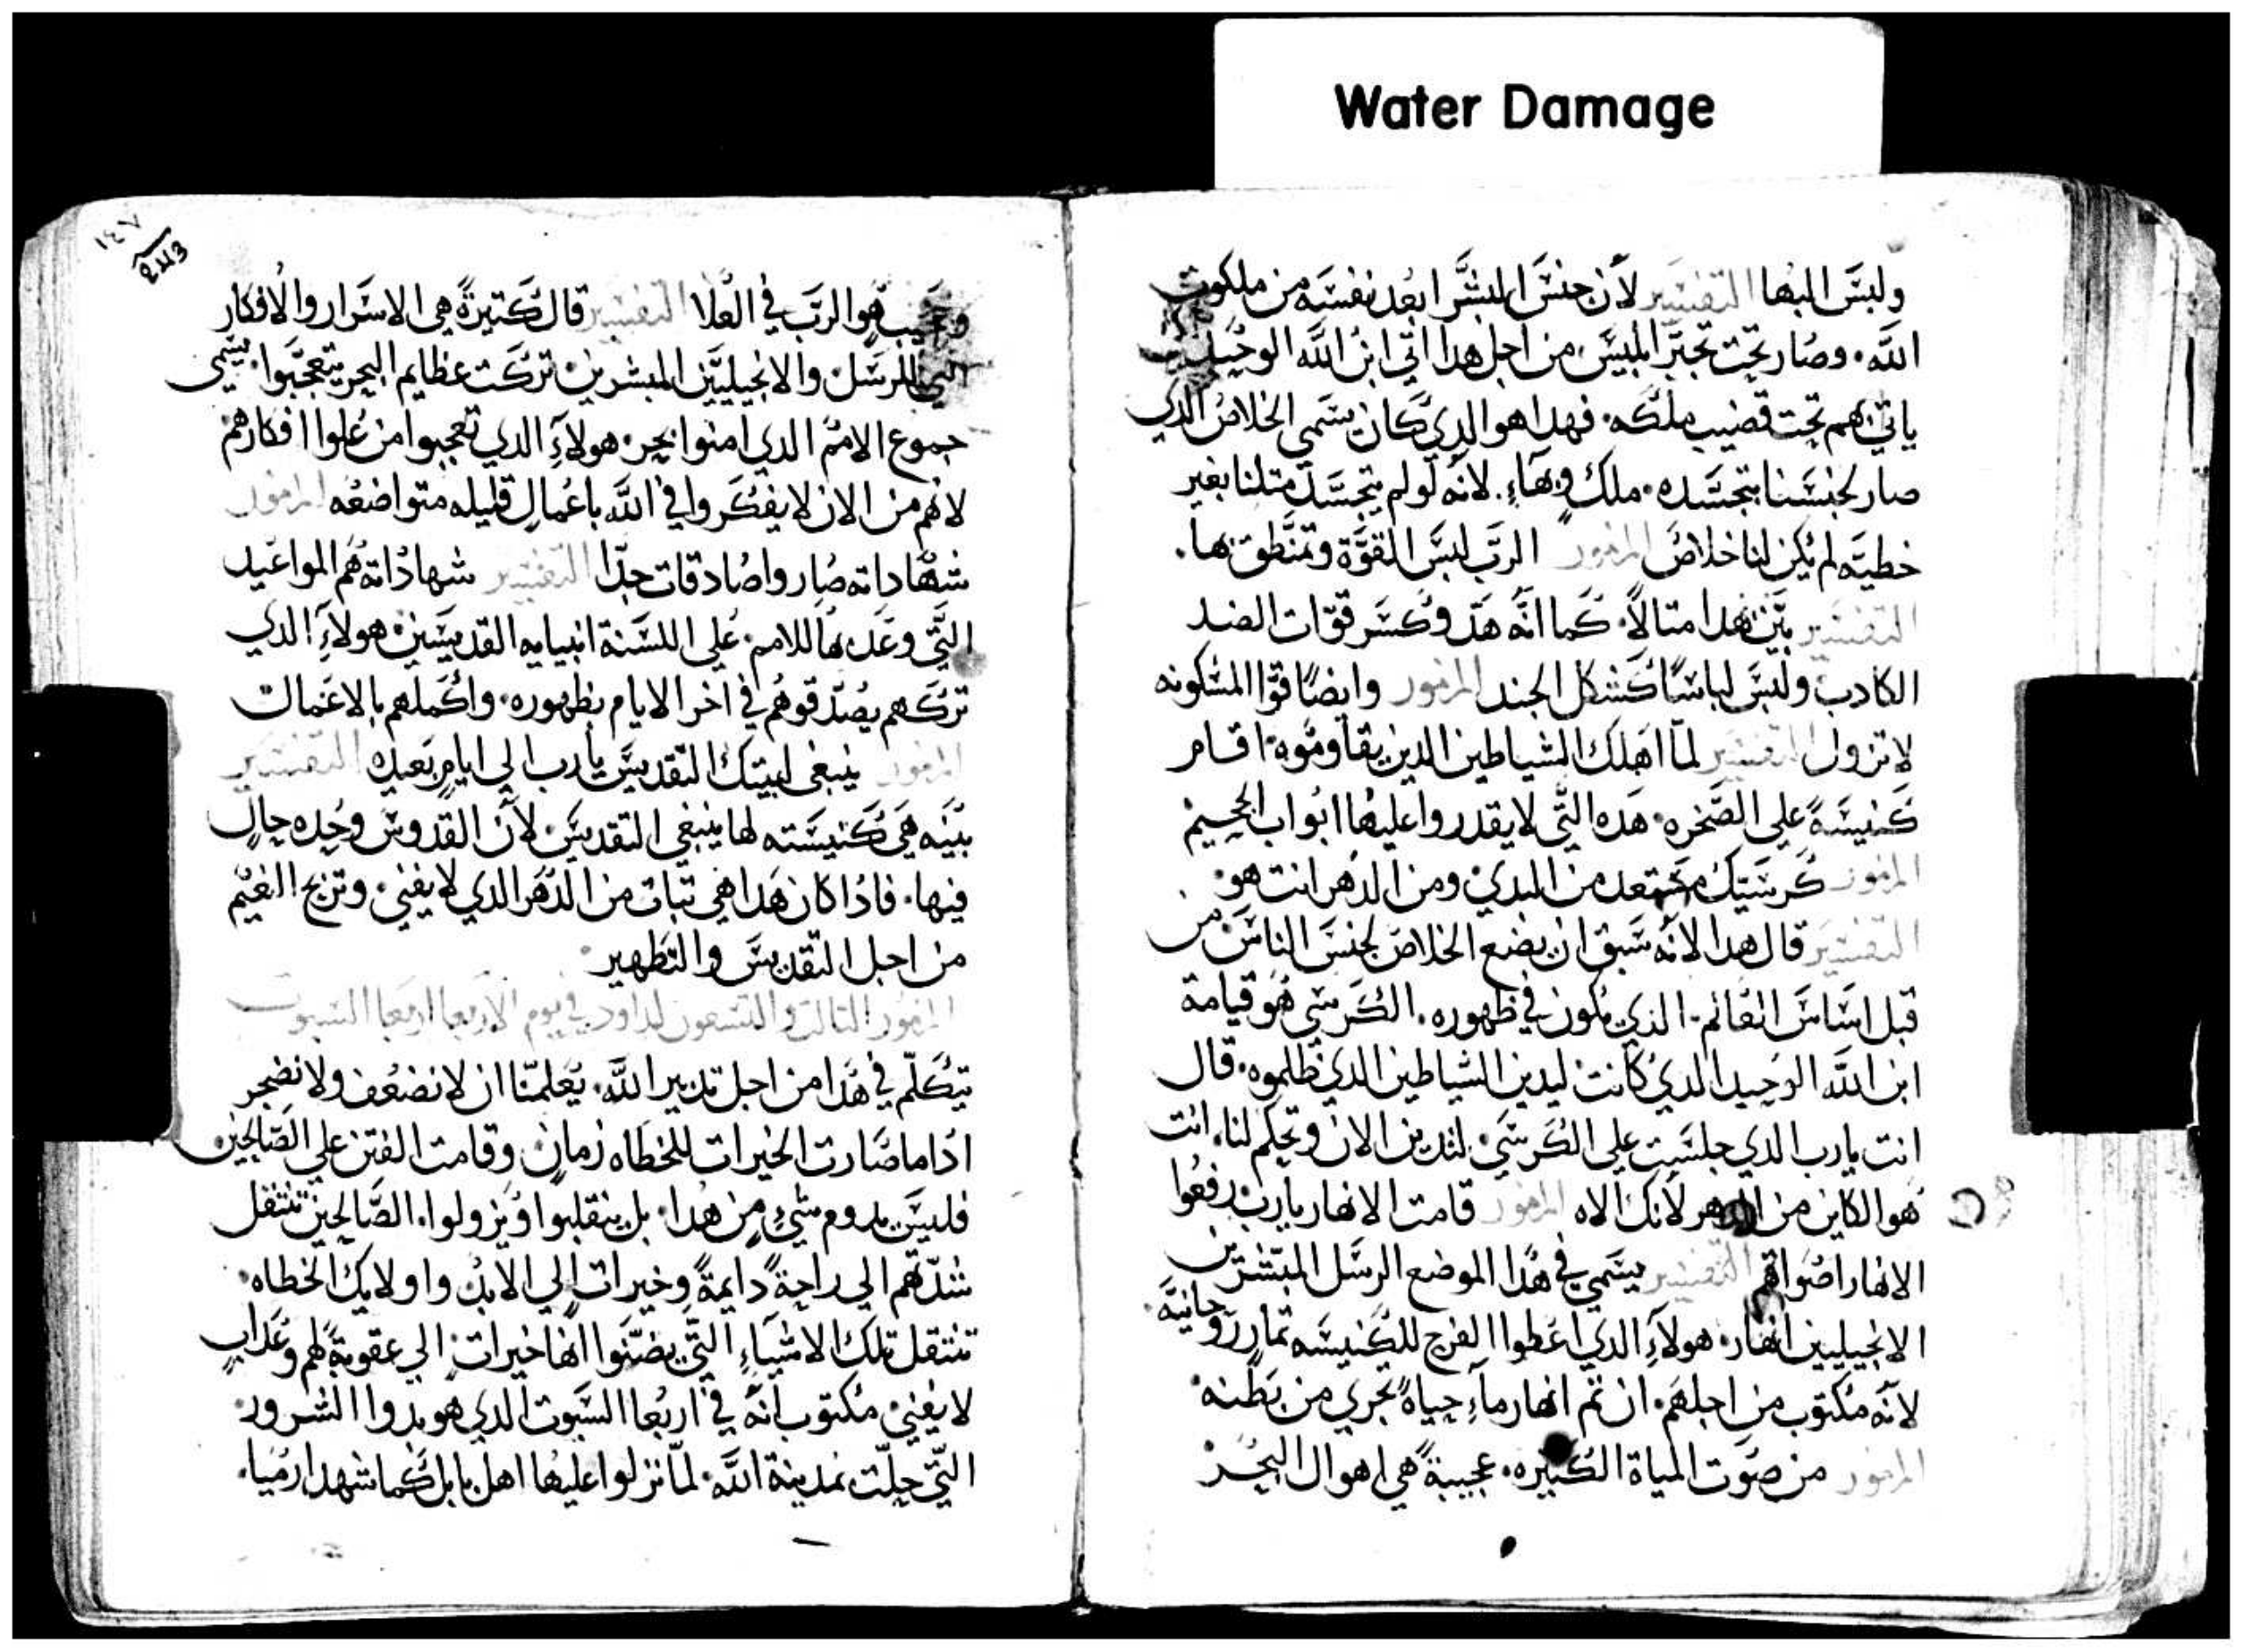 Water Damage
ولبس البها التفسير لان جنس البشر ابعد نفسه من ملكوت
الله. وصار تحت تجبر ابليس. من اجل هدا اتي ابن الله الوحيد
ياتي بهم تحت قضيب ملكه. فهدا هو الدي كان يسمي الخلاص الدي
صار لجنسنا بتجسده. ملك وبهاء. لانه لو لم يتجسد متلنا بغير
خطيه لم يكن لنا خلاص المزمور الرب لبس القوة وتمنطق بها.
التفسير بين بهدا متالاً. كما انه هد وكسر قوات الضد
الكادب ولبس لباساً كشكل الجند المزمور وايضاً قوا المسكونه
لا تزول التفسير لما اهلك الشياطين الدين يقاوموه. اقام
كنيسةً علي الصخره. هده التي لا يقدروا عليها ابواب الجحيم
المزمور كرسيك مستعد من البدي ومن الدهر انت هو.
التفسير قال هدا لانه سبق ان يضع الخلاص لجنس الناس من
قبل اساس العالم. الذي يكون في ظهوره. الكرسي هو قيامة
ابن الله الوحيد الدي كانت ليدين الشياطين الدي ظلموه. قال
انت يارب الدي جلست علي الكرسي. لتدين الان وتحكم لنا. انت
هو الكاين من الدهر لانك الاه المزمور قامت الانهار يارب. رفعوا
الانهار اصواتهم التفسير يسمي في هدا الموضع الرسل المبشرين
الانجيليين انهار. هولاء الدي اعطوا الفرح للكنيسه تمار روحانيه.
لانه مكتوب من اجلهم. ان تم انهار ماء حياة تجري من بطنه.
المزمور من صوت المياة الكبيره. عجيبة هي اهوال البحر
١٤٧
وعجيب هو الرب في العلا التفسير قال كتيرةً هي الاسرار والافكار
التي للرسل والانجيليين المبشرين. تركت عظايم البحر يتعجبوا. يسمي
جموع الامم الدي امنوا بحر. هولاء الدي تعجبوا من علوا افكارهم
لانهم من الان لا يفكروا في الله باعمال قليله متواضعه المزمور
شهاداته صاروا صادقات جدا التفسير شهاداته هم المواعيد
التي وعد بها للامم. علي السنة انبيايه القديسين. هولاء الدي
تركهم يصدقوهم في اخر الايام بظهوره. واكملهم بالاعمال
المزمور ينبغي لبيتك التقديس يارب الي ايام بعيده التفسير
بيته هي كنيسته لها ينبغي التقديس. لان القدوس وحده حال
فيها. فادا كان هدا فهي تبات من الدهر الدي لا يفني. وتربح النعيم
من اجل التقديس والتطهير.
المزمور التالت والتسعون لداود في يوم الاربعا اربعا السبوت
يتكلم في هدا من اجل تدبير الله. يعلمنا ان لا نضعف ولا نضجر
ادا ما صارت الخيرات للخطاه زمان. وقامت الفتن علي الصالحين
فليس يدوم شيء من هدا. بل ينقلبوا ويزولوا. الصالحين تنتقل
شدتهم الي راحةً دايمةً وخيرات الي الابد. واولايك الخطاه.
تنتقل تلك الاشياء التي يضنوا انها خيرات. الي عقوبةً لهم وعداب
لا يفني. مكتوب انه في اربعا السبوت الدي هو بدوا الشرور.
التي حلت بمدينة الله. لما نزلوا عليها اهل بابل كما شهد ارميا.